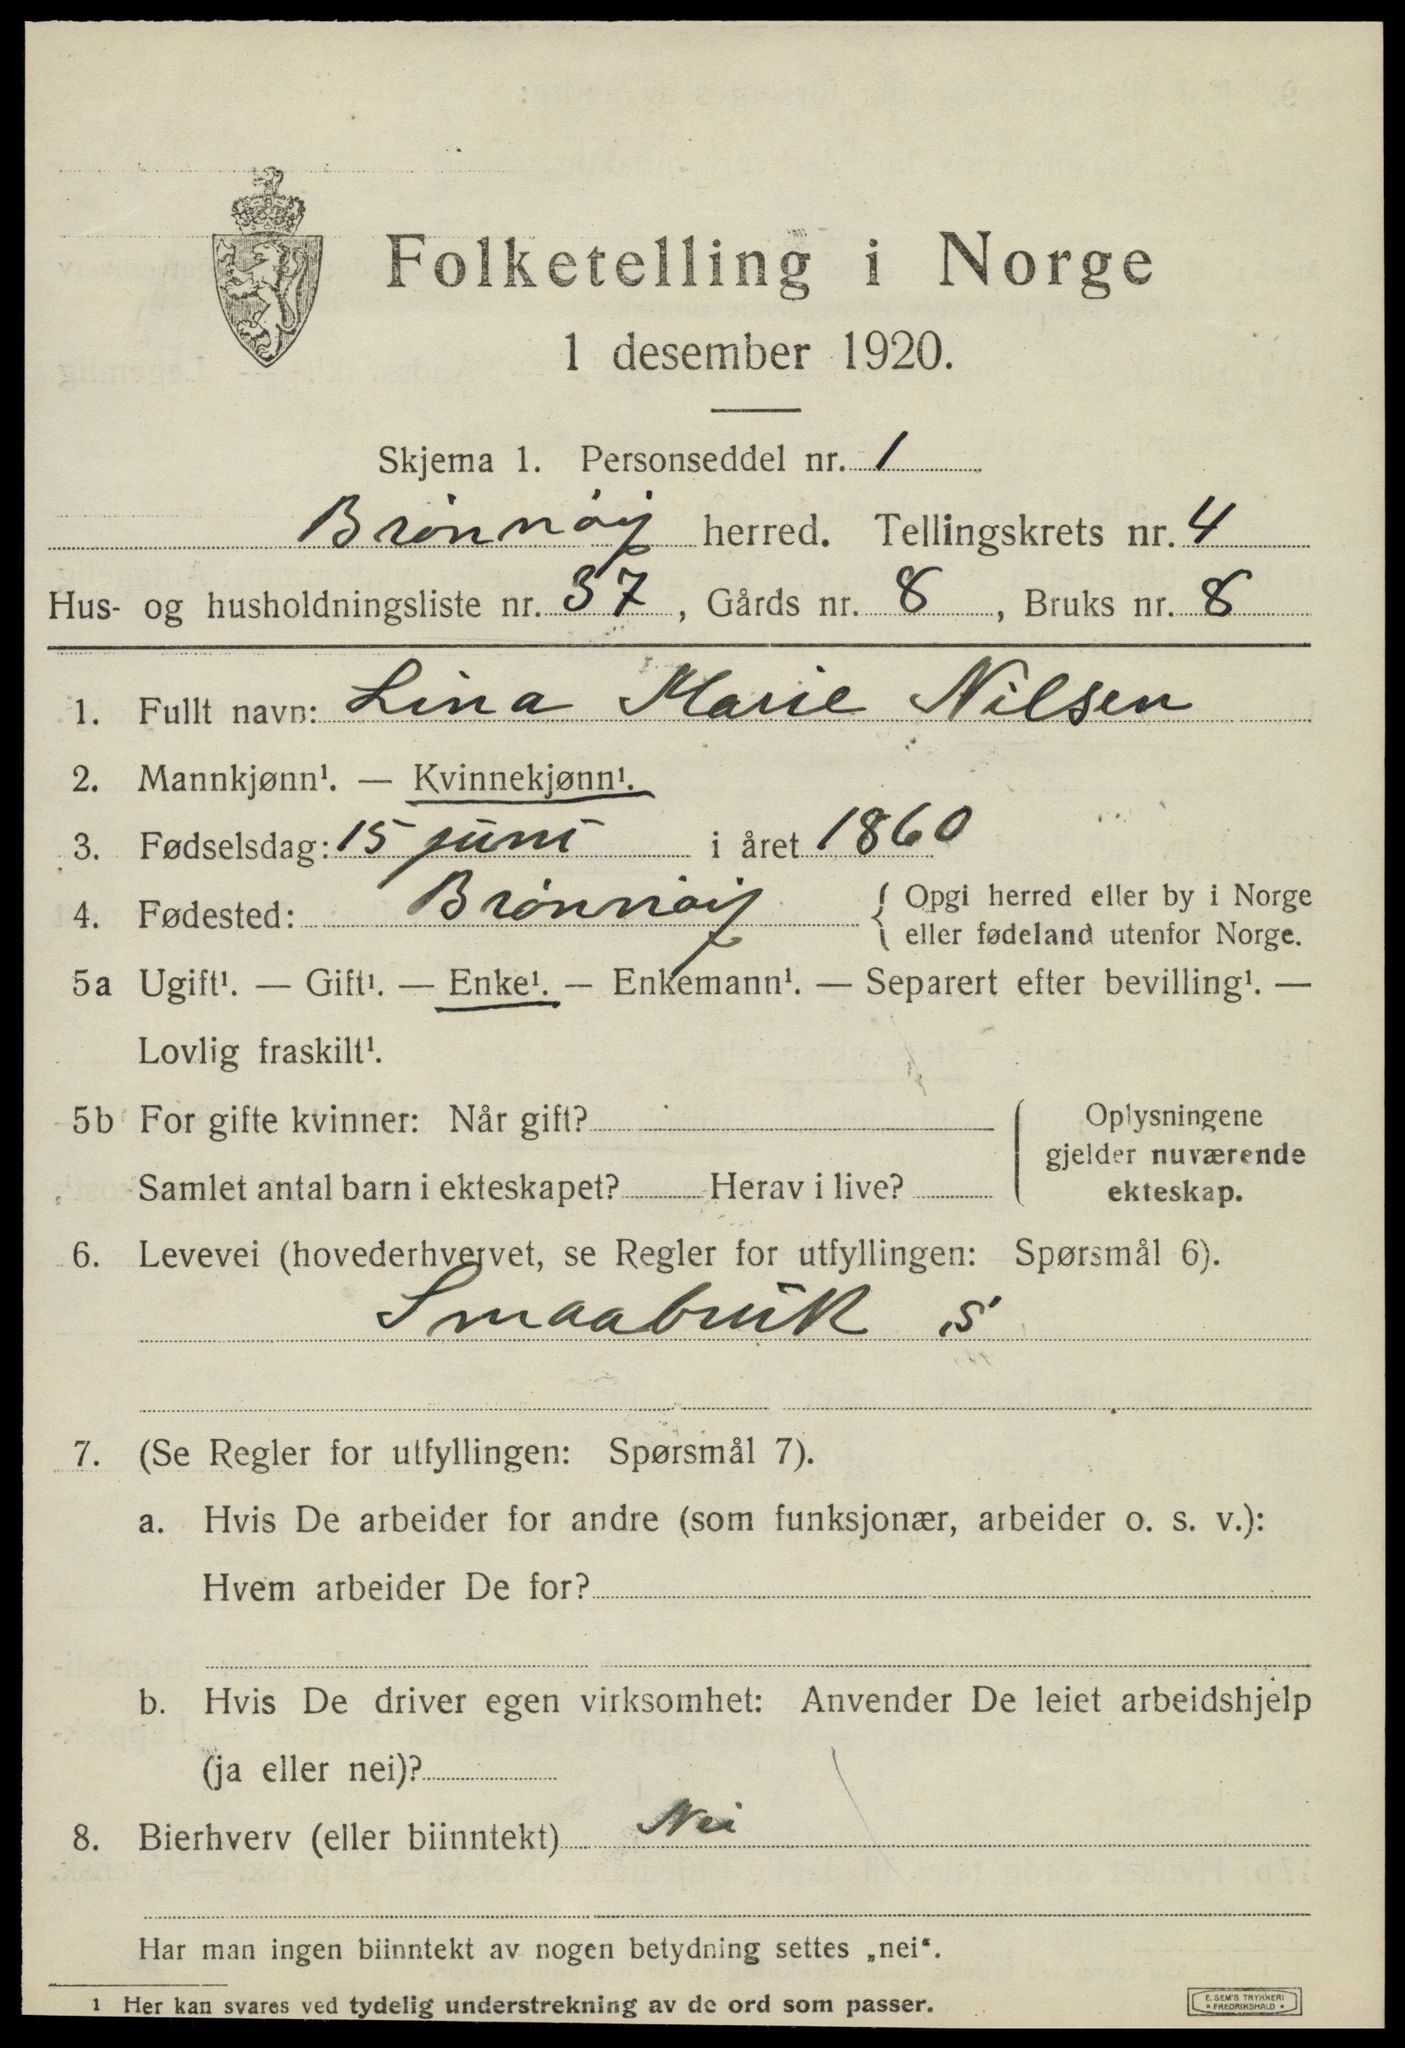 Folketelling i Norge
1 desember 1920.
Skjema 1. Personseddel nr. 1
Brønnøy herred. Tellingskrets nr. 4
Hus- og husholdningsliste nr. 37, Gårds nr. 8, Bruks nr. 8
1. Fullt navn: Lina Marie Nilsen
2. Mannkjønn¹. — Kvinnekjønn¹.
3. Fødselsdag: 15 juni i året 1860
4. Fødested: Brønnøy { Opgi herred eller by i Norge
eller fødeland utenfor Norge.
5a Ugift¹. — Gift¹. — Enke¹. — Enkemann¹. — Separert efter bevilling¹. —
Lovlig fraskilt¹.
5b For gifte kvinner: Når gift?
Samlet antal barn i ekteskapet? Herav i live?
Oplysningene
gjelder nuværende
ekteskap.
6. Levevei (hovederhvervet, se Regler for utfyllingen: Spørsmål 6).
Smaabruk s
7. (Se Regler for utfyllingen: Spørsmål 7).
a. Hvis De arbeider for andre (som funksjonær, arbeider o. s. v.):
Hvem arbeider De for?
b. Hvis De driver egen virksomhet: Anvender De leiet arbeidshjelp
(ja eller nei)?
8. Bierhverv (eller biinntekt) Nei
Har man ingen biinntekt av nogen betydning settes „nei“.
¹ Her kan svares ved tydelig understrekning av de ord som passer.
E. SEM'S TRYKKERI
• FREDRIKSHALD •